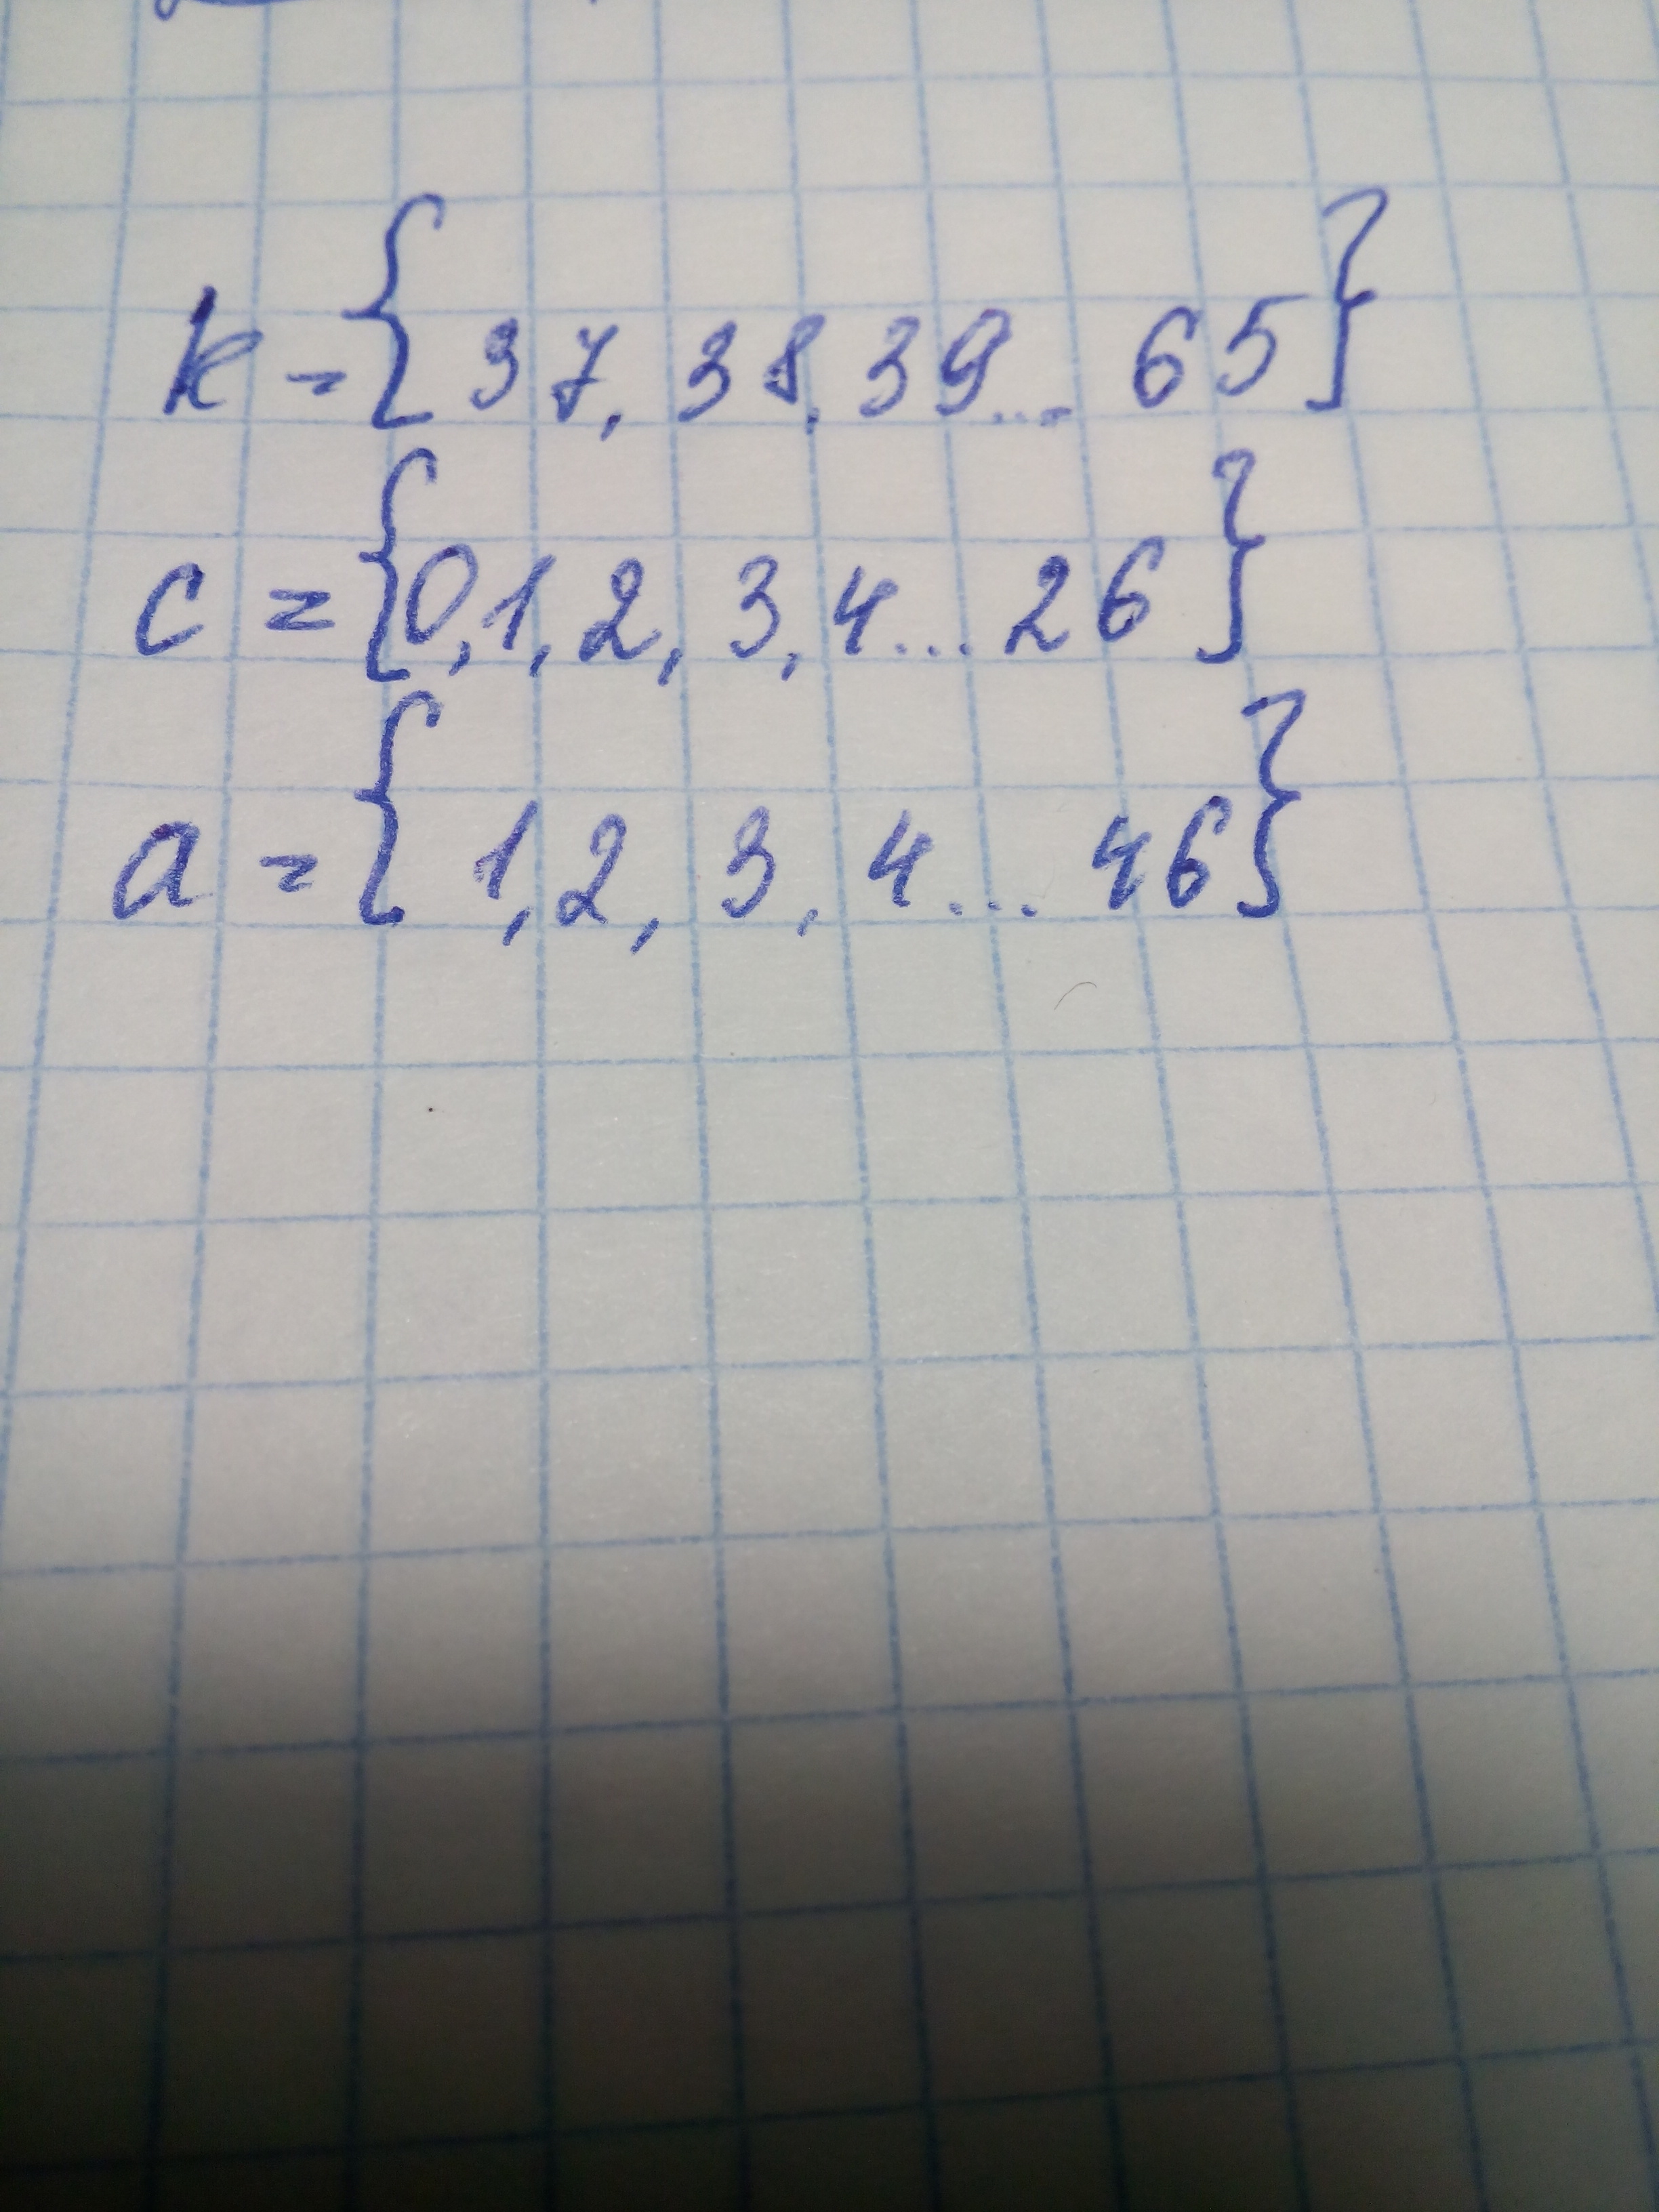 k = {37, 38, 39... 65}
c = {0, 1, 2, 3, 4... 26}
a = {1, 2, 3, 4... 46}